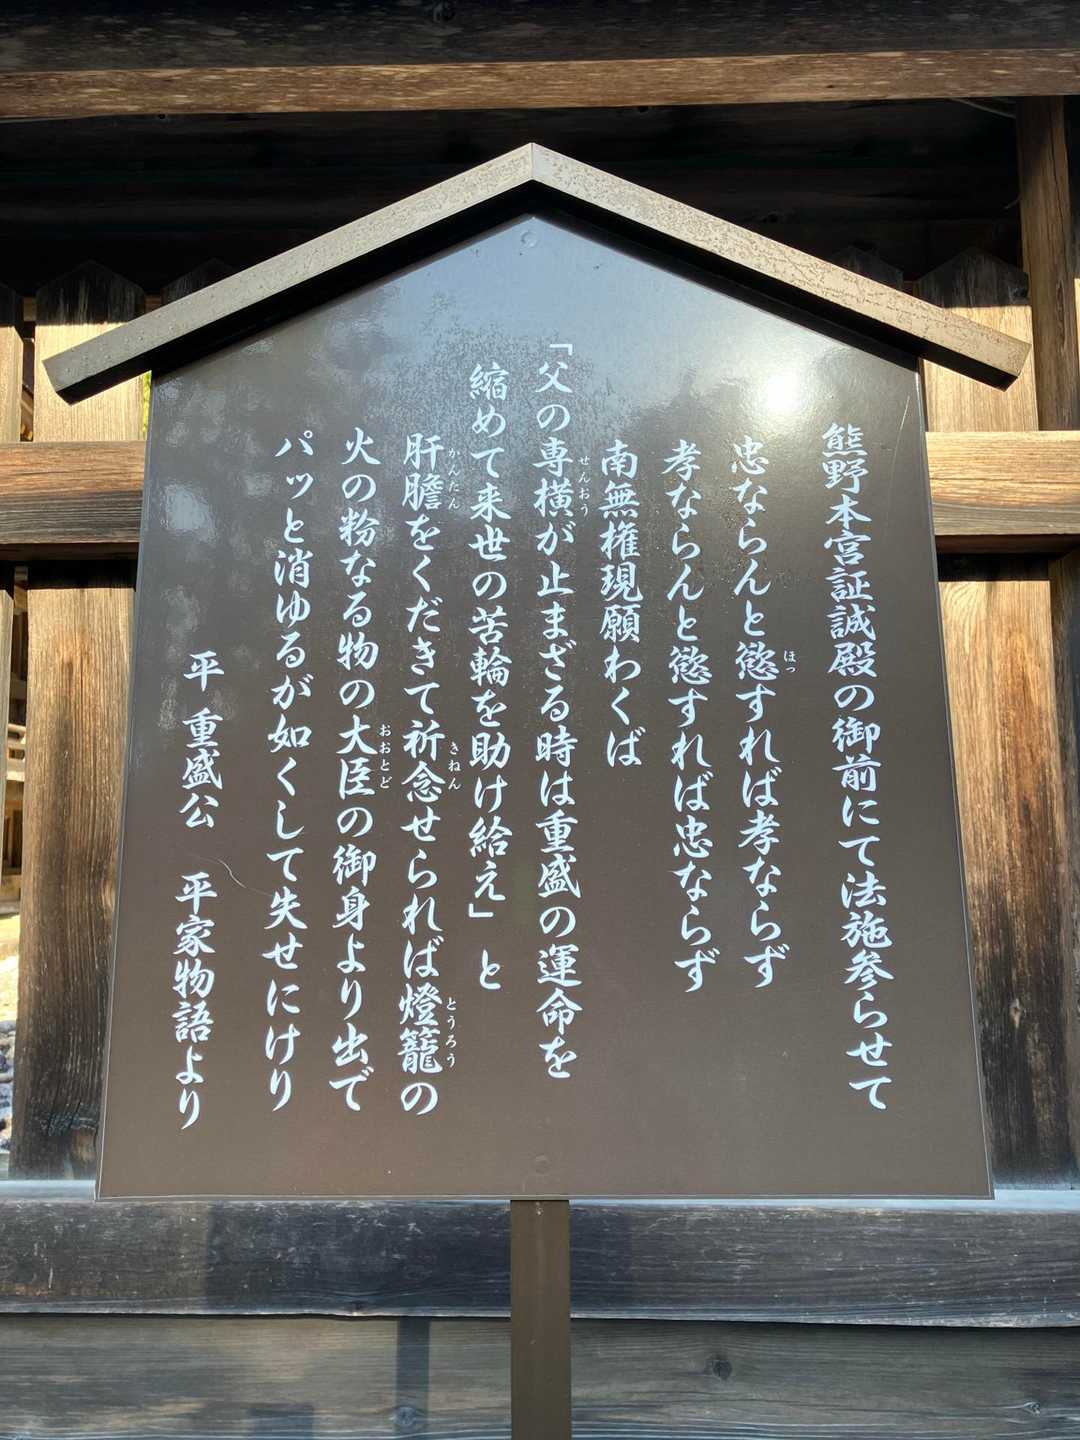 熊野本宮証誠殿の御前にて法施参らせて
忠ならんと慾すれば孝ならず
孝ならんと慾すれば忠ならず
南無権現願わくば
「父の専横が止まざる時は重盛の運命を
縮めて来世の苦輪を助け給え」と
肝膽をくだきて祈念せられば燈籠の
火の粉なる物の大臣の御身より出で
パッと消ゆるが如くして失せにけり
平 重盛公 平家物語より